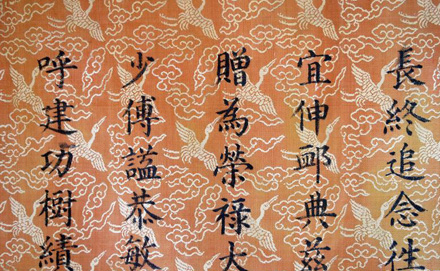 長終追念徃
宜伸卹典茲
贈為榮禄大
少傅謚恭敏
呼建功樹績